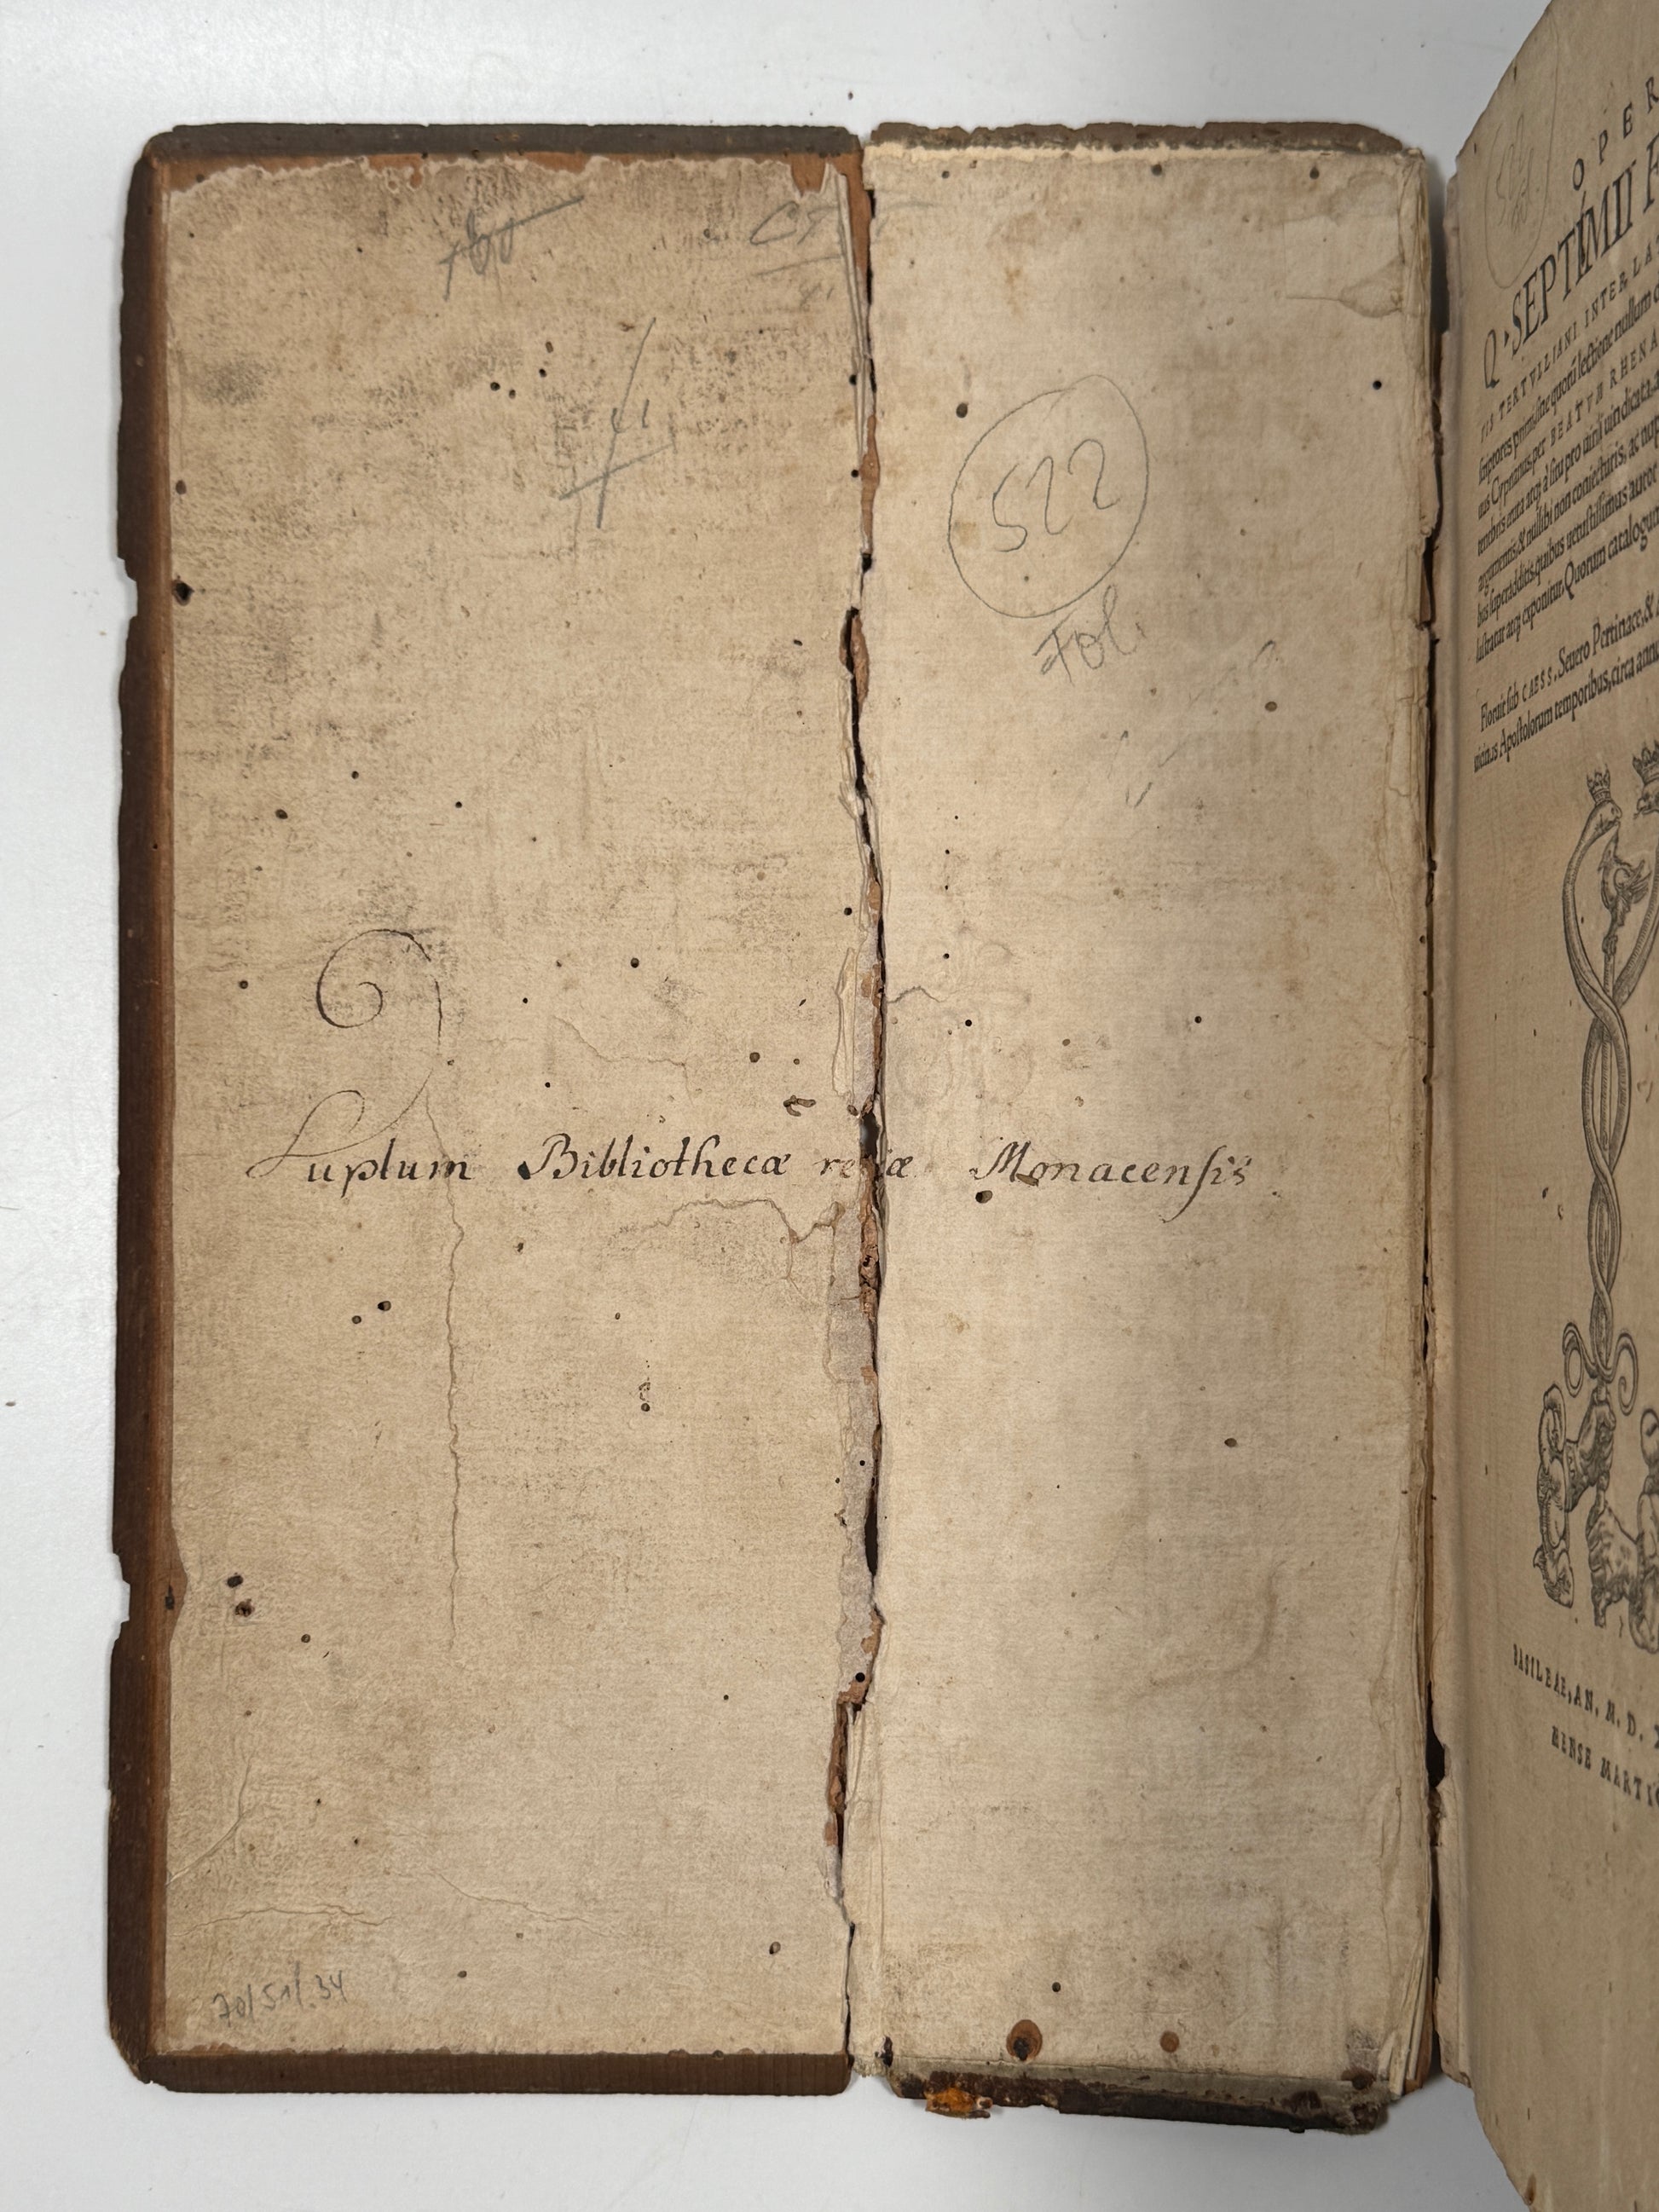 522
Fol.
Duplum Bibliothecæ regiæ Monacensis
70/51/34
OPER
Q·SEPTIMII F
TERTVLIANI INTER LA
ſcriptores primi, ſine quorū lectione nullum
nus Cyprianus, per BEATVM RHENA
tenebris eruta atq; à ſitu pro uirili uindicata,
argumentis, & nullibi non coniecturis, ac nup
bus ſuperadditis, quibus uetuſtiſſimus autor
luſtratur atq; exponitur. Quorum catalogum
Floruit ſub CAESS. Seuero Pertinace, &
uicinis Apoſtolorum temporibus, circa
BASILEAE, AN. M. D.
MENSE MARTIO